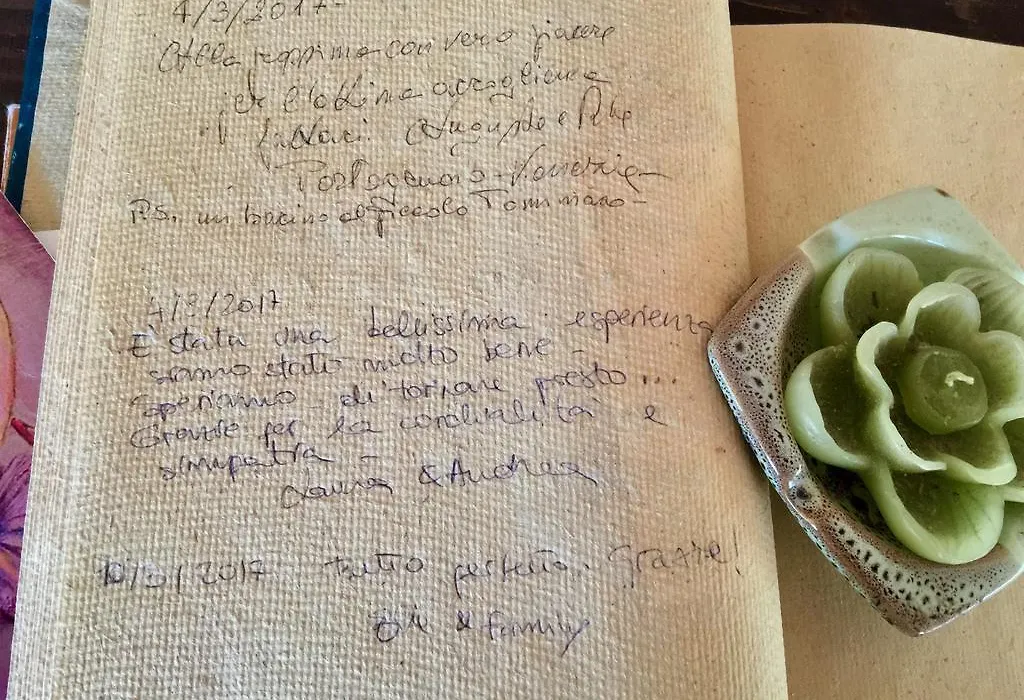 4/3/2017
Alla prossima con vero piacere
per l'ottima accoglienza
Augusto e
Portogruaro - Venezia
P.S. un bacino al piccolo Tommaso -
4/3/2017
E' stata una bellissima esperienza
siamo stati molto bene -
speriamo di tornare presto...
Grazie per la cordialità e
simpatia -
Laura & Andrea
10/3/2017 tutto perfetto. Grazie!
& family